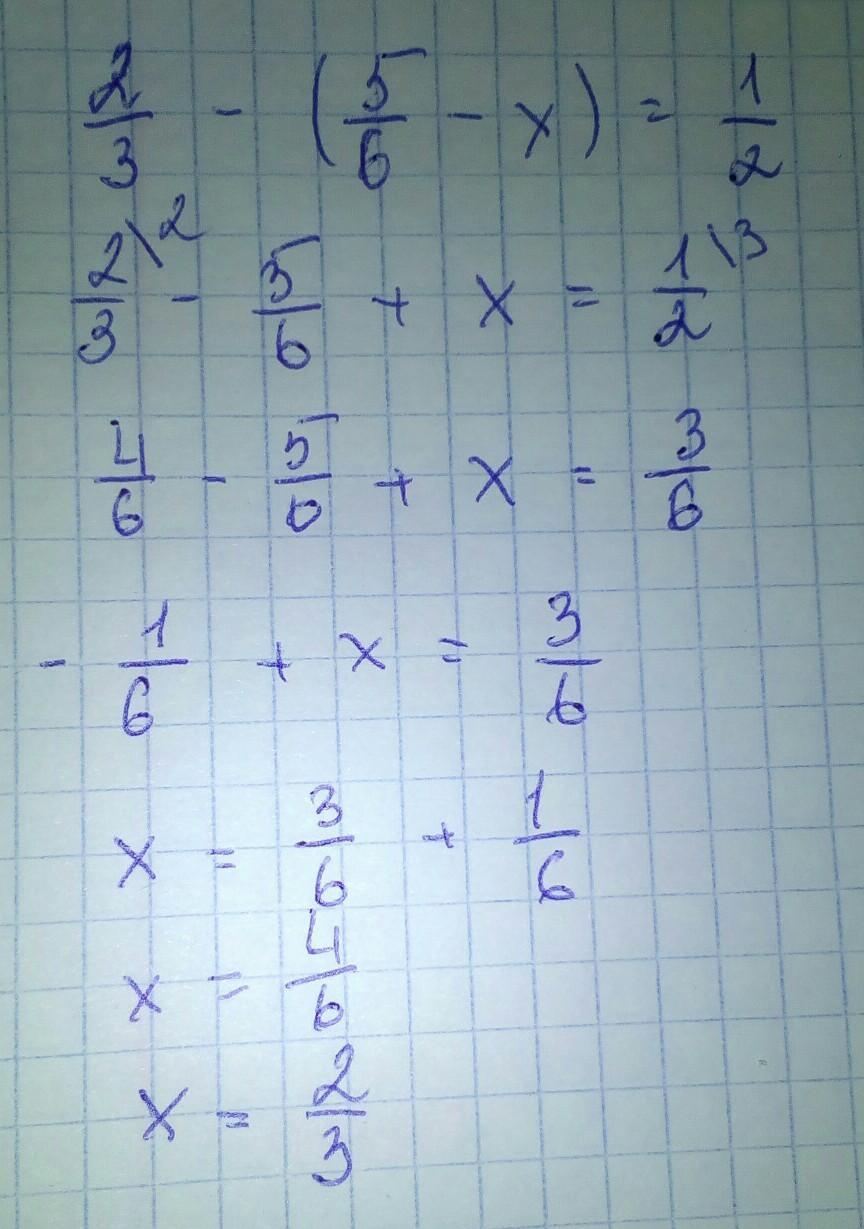 2/3 - (5/6 - x) = 1/2
2/3\2 - 5/6 + x = 1/2\3
4/6 - 5/6 + x = 3/6
- 1/6 + x = 3/6
x = 3/6 + 1/6
x = 4/6
x = 2/3